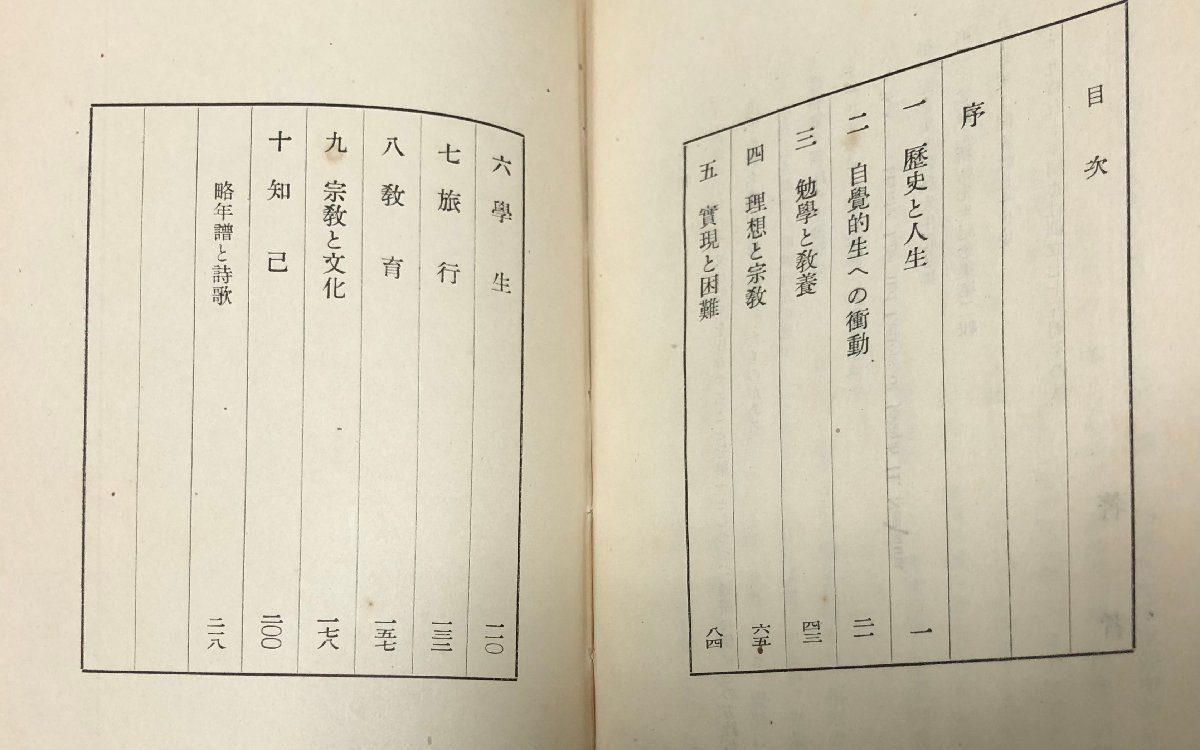 目次
序
一 歷史と人生 一
二 自覺的生への衝動 二一
三 勉學と敎養 四三
四 理想と宗敎 六五
五 實現と困難 八四
六 學生 一一〇
七 旅行 一三三
八 敎育 一五七
九 宗敎と文化 一七八
十 知己 二〇〇
略年譜と詩歌 二一八